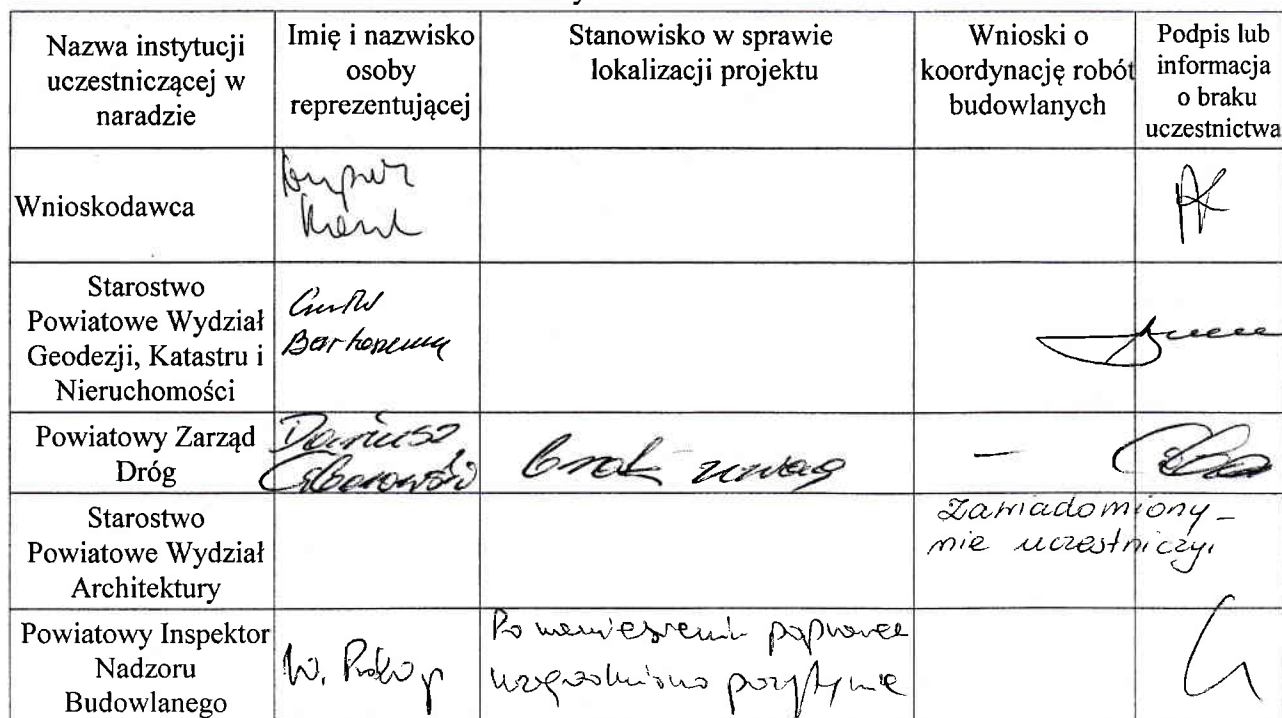 Nazwa instytucji
uczestniczącej w
naradzie
Imię i nazwisko
osoby
reprezentującej
Stanowisko w sprawie
lokalizacji projektu
Wnioski o
koordynację robót
budowlanych
Podpis lub
informacja
o braku
uczestnictwa
Wnioskodawca
Starostwo
Powiatowe Wydział
Geodezji, Katastru i
Nieruchomości
Powiatowy Zarząd
Dróg
Dariusz
brak uwag
–
Starostwo
Powiatowe Wydział
Architektury
Zawiadomiony –
nie uczestniczył
Powiatowy Inspektor
Nadzoru
Budowlanego
W. Prokop
Po naniesieniu poprawek
uzgodniono pozytywnie